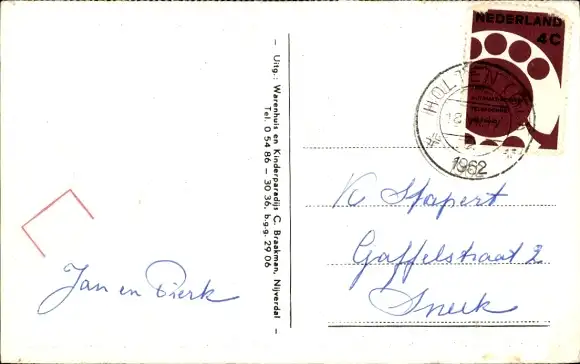 Jan en Dierk
– Uitg.: Warenhuis en Kinderparadijs C. Braakman, Nijverdal –
Tel. 0 54 86 — 30 36, b.g.g. 29 06
NEDERLAND
4C
HOLTEN
1962
K Stapert
Gaffelstraat 2
Sneek